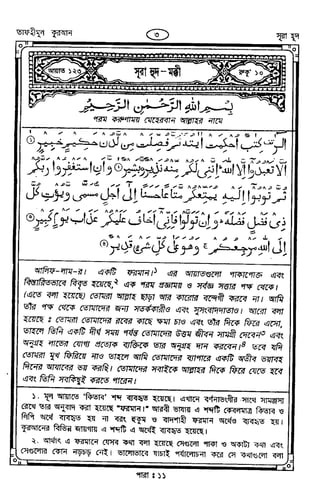 তাফহীমুল কুরআন
৩
সূরা হূদ
আয়াত ১২৩
সূরা হুদ-মক্কী
রুকূ' ১০
بِسْمِ اللهِ الرَّحْمٰنِ الرَّحِيْمِ
পরম করুণাময় মেহেরবান আল্লাহর নামে
الٓرٰ كِتٰبٌ اُحْكِمَتْ اٰيٰتُهٗ ثُمَّ فُصِّلَتْ مِنْ لَّدُنْ حَكِيْمٍ خَبِيْرٍ
اَلَّا تَعْبُدُوْٓا اِلَّا اللهَ اِنَّنِيْ لَكُمْ مِّنْهُ نَذِيْرٌ وَّبَشِيْرٌ وَّاَنِ اسْتَغْفِرُوْا رَبَّكُمْ
ثُمَّ تُوْبُوْٓا اِلَيْهِ يُمَتِّعْكُمْ مَّتَاعًا حَسَنًا اِلٰٓى اَجَلٍ مُّسَمًّى وَّيُؤْتِ كُلَّ
ذِيْ فَضْلٍ فَضْلَهٗ وَاِنْ تَوَلَّوْا فَاِنِّيْٓ اَخَافُ عَلَيْكُمْ عَذَابَ يَوْمٍ كَبِيْرٍ
اِلَى اللهِ مَرْجِعُكُمْ وَهُوَ عَلٰى كُلِّ شَيْءٍ قَدِيْرٌ
আলিফ-লাম-রা। একটি ফরমান।১ এর আয়াতগুলো পাকাপোক্ত এবং
বিস্তারিতভাবে বিবৃত হয়েছে,২ এক পরম প্রজ্ঞাময় ও সর্বজ্ঞ সত্তার পক্ষ থেকে।
(এতে বলা হয়েছে) তোমরা আল্লাহ ছাড়া আর কারোর বন্দেগী করবে না। আমি
তাঁর পক্ষ থেকে তোমাদের জন্য সতর্ককারীও এবং সুসংবাদদাতাও। আরো বলা
হয়েছে ঃ তোমরা তোমাদের রবের কাছে ক্ষমা চাও এবং তাঁর দিকে ফিরে এসো,
তাহলে তিনি একটি দীর্ঘ সময় পর্যন্ত তোমাদের উত্তম জীবন সামগ্রী দেবেন৩ এবং
অনুগ্রহ লাভের যোগ্য প্রত্যেক ব্যক্তিকে তার অনুগ্রহ দান করবেন।৪ তবে যদি
তোমরা মুখ ফিরিয়ে নাও তাহলে আমি তোমাদের ব্যাপারে একটি অতীব ভয়াবহ
দিনের আযাবের ভয় করছি। তোমাদের সবাইকে আল্লাহর দিকে ফিরে যেতে হবে
এবং তিনি সবকিছুই করতে পারেন।
১. মূল আয়াতে 'কিতাব' শব্দ ব্যবহৃত হয়েছে। এখানে বর্ণনাভংগীর সাথে সামঞ্জস্য
রেখে তার অনুবাদ করা হয়েছে "ফরমান।" আরবী ভাষায় এ শব্দটি কেবলমাত্র কিতাব ও
লিপি অর্থে ব্যবহৃত হয় না বরং হুকুম ও বাদশাহী ফরমান অর্থেও ব্যবহৃত হয়।
কুরআনের বিভিন্ন জায়গায় এ শব্দটি এ অর্থেই ব্যবহৃত হয়েছে।
২. অর্থাৎ এ ফরমানে যেসব কথা বলা হয়েছে সেগুলো পাকা ও অকাট্য কথা এবং
সেগুলোর কোন নড়চড় নেই। ভালোভাবে যাচাই পর্যালোচনা করে সে কথাগুলো বলা
পারা ঃ ১১